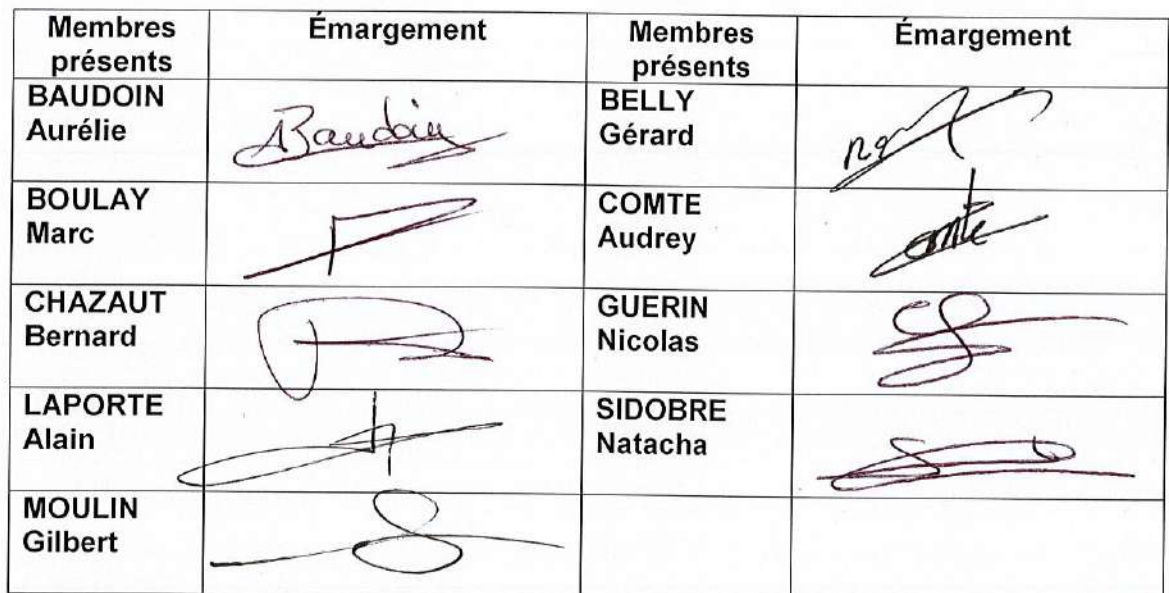 Membres présents
Émargement
Membres présents
Émargement
BAUDOIN
Aurélie
ABaudoin
BELLY
Gérard
BOULAY
Marc
COMTE
Audrey
comte
CHAZAUT
Bernard
GUERIN
Nicolas
LAPORTE
Alain
SIDOBRE
Natacha
MOULIN
Gilbert